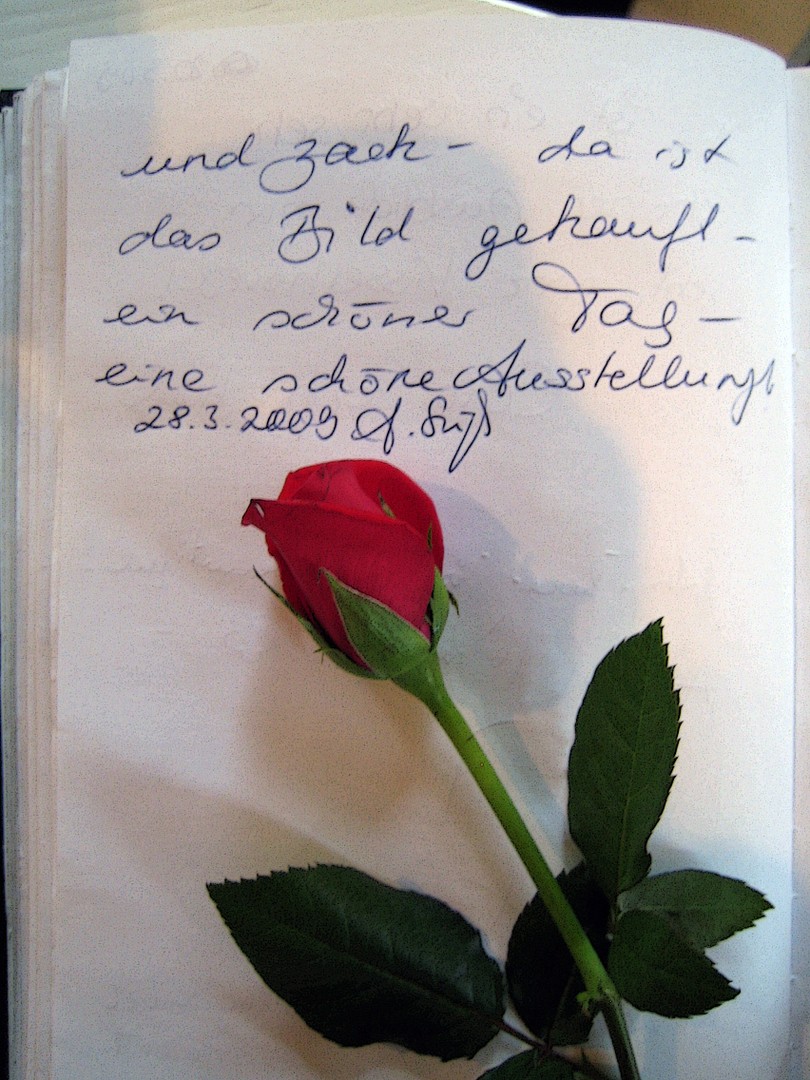 und zack - da ist
das Bild gekauft -
ein schöner Tag -
eine schöne Ausstellung
28.3.2009